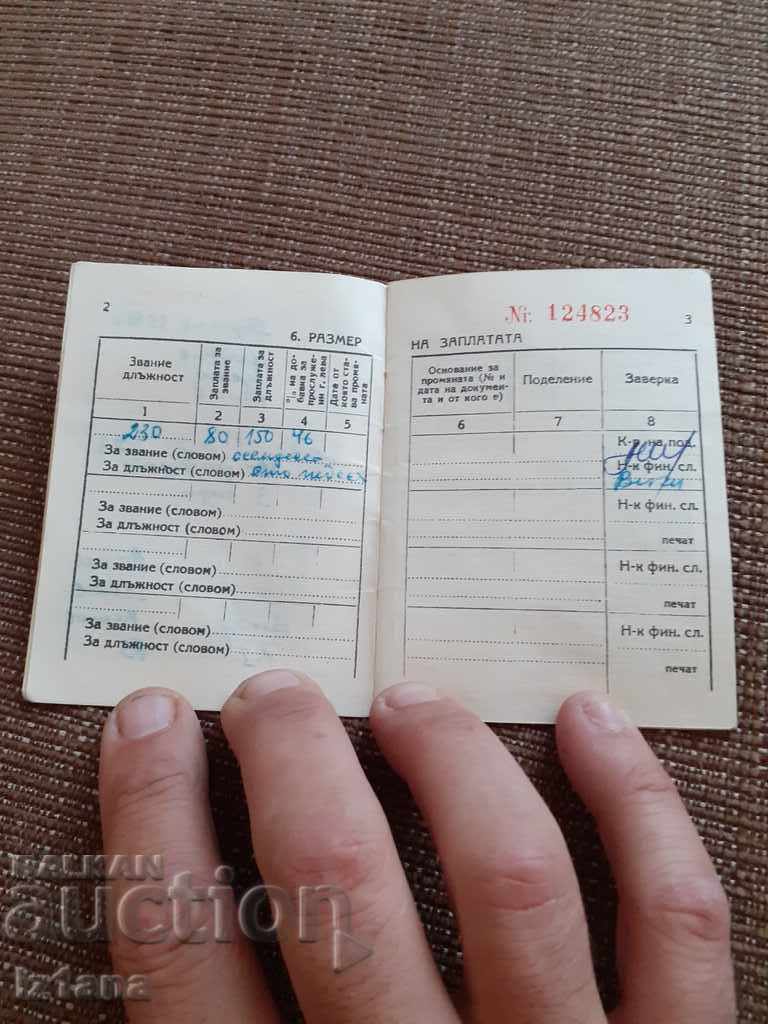 2
6. РАЗМЕР
Звание длъжност
Заплата за звание
Заплата за длъжност
% на добавка за прослужени г. лева
Дата от която става промяната
1 2 3 4 5
230 80 150 46
За звание (словом) осемдесет
За длъжност (словом) сто
За звание (словом)
За длъжност (словом)
За звание (словом)
За длъжност (словом)
За звание (словом)
За длъжност (словом)
№: 124823
3
НА ЗАПЛАТАТА
Основание за
промяната (№ и
дата на докумен-
та и от кого е)
Поделение
Заверка
6 7 8
К-р на под.
Н-к фин. сл.
Н-к фин. сл.
печат
Н-к фин. сл.
печат
Н-к фин. сл.
печат
BALKAN
auction
iztana